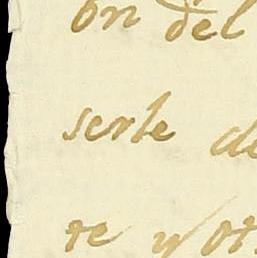 on del
serle de
te y ot